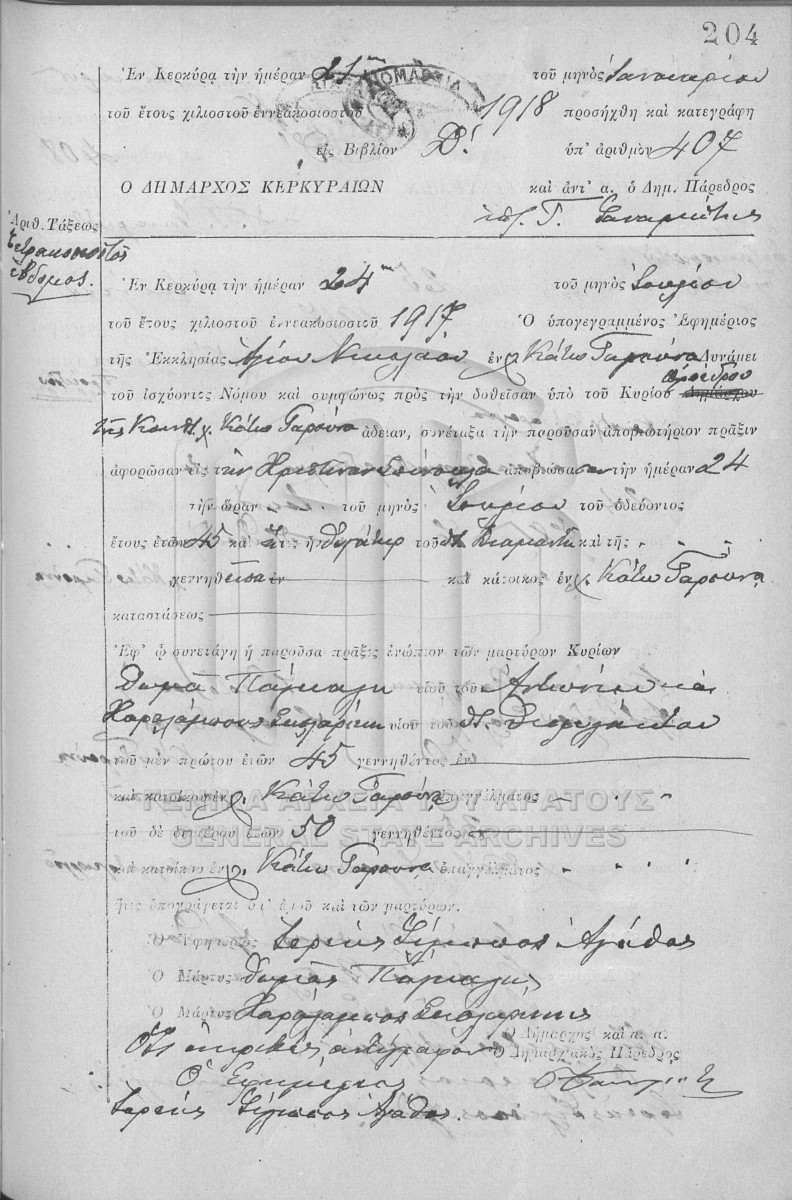 204
Ἐν Κερκύρᾳ τὴν ἡμέραν 21ην τοῦ μηνὸς Ἰανουαρίου
ΝΟΜΑΡΧΙΑ
τοῦ ἔτους χιλιοστοῦ ἐννεακοσιοστοῦ 1918 προσήχθη καὶ κατεγράφη
εἰς Βιβλίον Δ΄. ὑπ' ἀριθμὸν 407
Ο ΔΗΜΑΡΧΟΣ ΚΕΡΚΥΡΑΙΩΝ καὶ ἀντ' α. ὁ Δημ. Πάρεδρος
Γ.
Ἀριθ. Τάξεως
τετρακοσιοστὸς
ἕβδομος.
Ἐν Κερκύρᾳ τὴν ἡμέραν 24ην τοῦ μηνὸς Ἰουλίου
τοῦ ἔτους χιλιοστοῦ ἐννεακοσιοστοῦ 1917 Ὁ ὑπογεγραμμένος Ἐφημέριος
τῆς Ἐκκλησίας Ἁγίου Νικολάου ἐν χ. Κάτω Γαρούνα Δυνάμει
τοῦ ἰσχύοντος Νόμου καὶ συμφώνως πρὸς τὴν δοθεῖσαν ὑπὸ τοῦ Κυρίου Δημάρχου προέδρου
τῆς Κοινότ. χ. Κάτω Γαρούνα ἄδειαν, συνέταξα τὴν παροῦσαν ἀποβιωτήριον πρᾶξιν
ἀφορῶσαν εἰς τὴν Χριστίναν ἀποβιώσασαν τὴν ἡμέραν 24
τὴν ὥραν τοῦ μηνὸς Ἰουλίου τοῦ ὁδεύοντος
ἔτους ἐτῶν 45 καὶ ἥτις ἡ θυγάτηρ τοῦ π. Διαμαντῆ καὶ τῆς
γεννηθεῖσα ἐν καὶ κάτοικος ἐν χ. Κάτω Γαρούνα
καταστάσεως
Ἐφ' ᾧ συνετάγη ἡ παροῦσα πρᾶξις ἐνώπιον τῶν μαρτύρων Κυρίων
Θωμᾶ Πάγκαλη υἱοῦ τοῦ Ἀντωνίου καὶ
Χαραλάμπους υἱοῦ τοῦ π.
τοῦ μὲν πρώτου ἐτῶν 45 γεννηθέντος ἐν
καὶ κατοίκου ἐν χ. Κάτω Γαρούνα ἐπαγγέλματος
ΓΕΝΙΚΑ ΑΡΧΕΙΑ ΤΟΥ ΚΡΑΤΟΥΣ
τοῦ δὲ δευτέρου ἐτῶν 50 γεννηθέντος ἐκ
GENERAL STATE ARCHIVES
καὶ κατοίκου ἐν χ. Κάτω Γαρούνα ἐπαγγέλματος
ἥτις ὑπογράφεται ὑπ' ἐμοῦ καὶ τῶν μαρτύρων.
Ὁ Ἐφημέριος Ἱερεὺς Ἀγάθος
Ὁ Μάρτυς Θωμᾶς Πάγκαλης
Ὁ Μάρτυς Χαράλαμπος
Ὁ Δήμαρχος καὶ α. α.
Ὅτι ἀκριβὲς ἀντίγραφον Ὁ Δημαρχιακὸς Πάρεδρος
Ὁ Ἐφημέριος
Ἱερεὺς Ἀγάθος.